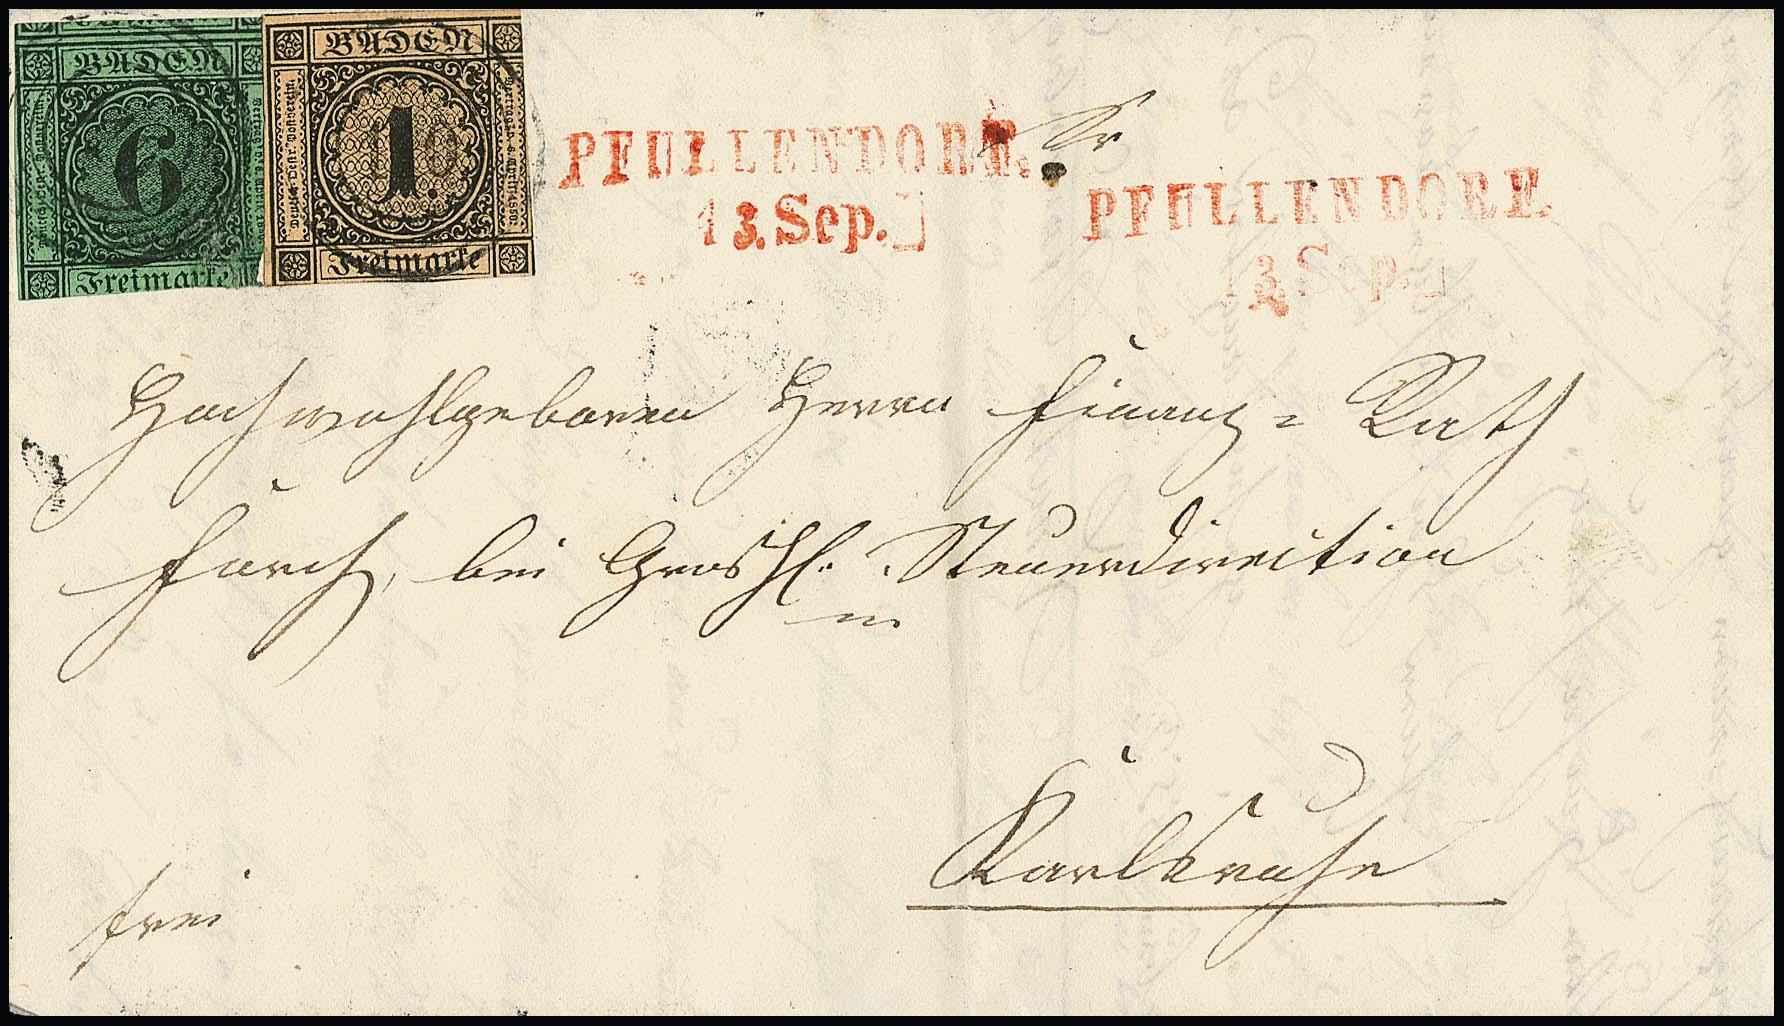 BADEN
6
Freimarke
BADEN
1.
Freimarke
PFULLENDORF.
13. Sep.
Sr
PFULLENDORF.
13. Sep.
Hochwohlgeboren Herrn Finanz-Rath
bei Grosh. Steuerdirection
Karlsruhe
frei